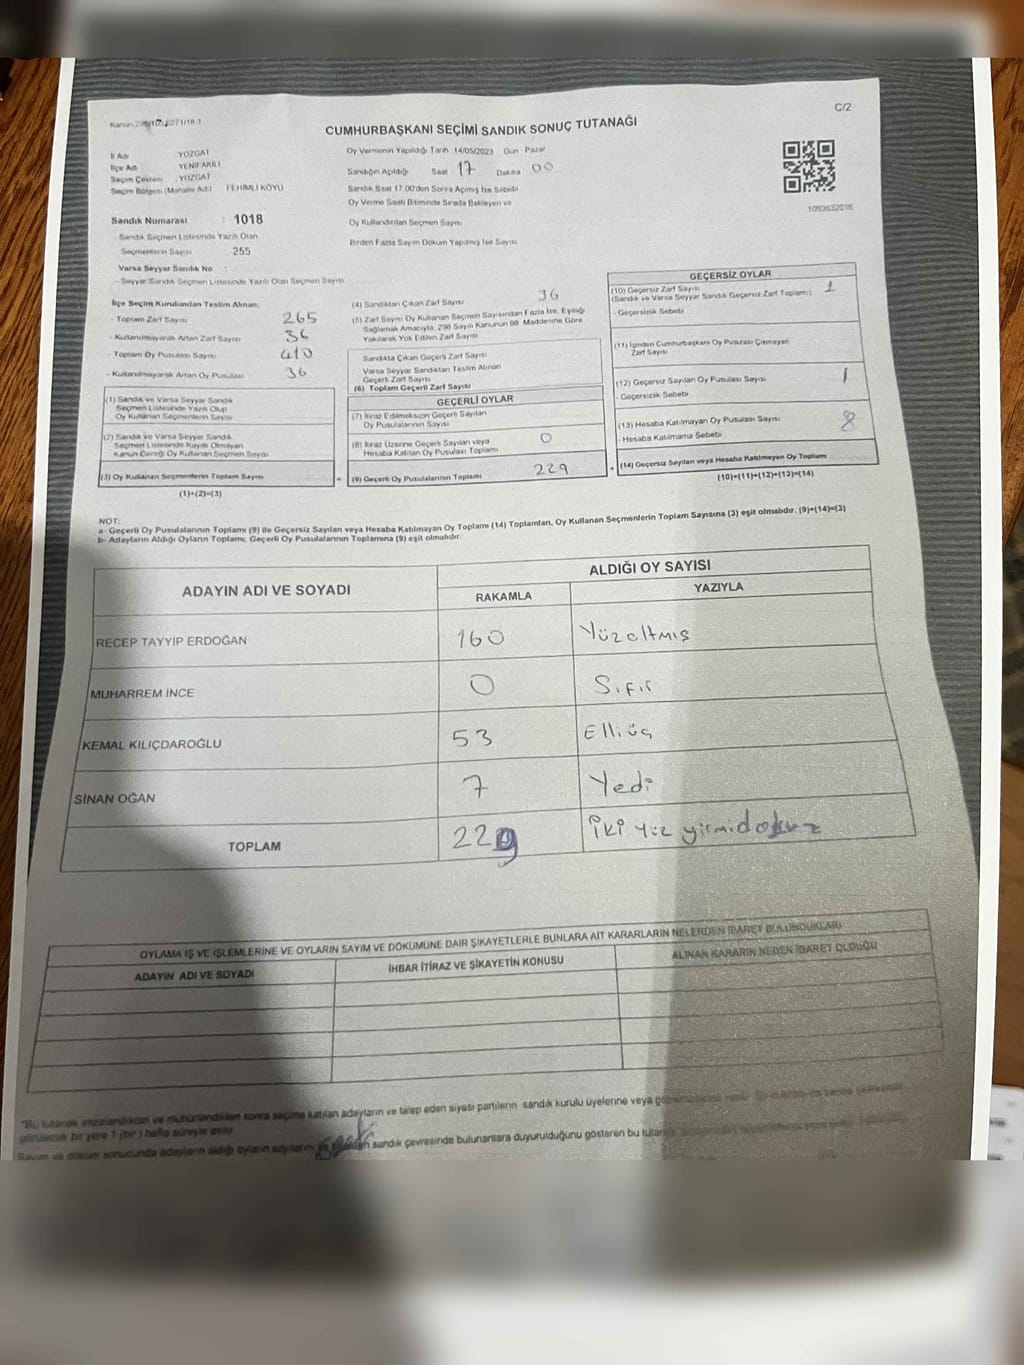 C/2
CUMHURBAŞKANI SEÇİMİ SANDIK SONUÇ TUTANAĞI
İl Adı : YOZGAT
İlçe Adı : YENİFAKILI
Seçim Çevresi : YOZGAT
Seçim Bölgesi (Mahalle Adı) FEHİMLİ KÖYÜ
Oy Vermenin Yapıldığı Tarih 14/05/2023 Gün Pazar
Sandığın Açıldığı Saat 17 Dakika 00
Sandık Saat 17.00'den Sonra Açılmış İse Sebebi
Oy Verme Saati Bitiminde Sırada Bekleyen ve
Oy Kullandırılan Seçmen Sayısı
Birden Fazla Sayım Döküm Yapılmış İse Sayısı
1093632016
Sandık Numarası : 1018
Sandık Seçmen Listesinde Yazılı Olan
Seçmenlerin Sayısı : 255
Varsa Seyyar Sandık No :
- Seyyar Sandık Seçmen Listesinde Yazılı Olan Seçmen Sayısı
İlçe Seçim Kurulundan Teslim Alınan;
- Toplam Zarf Sayısı 265
- Kullanılmayarak Artan Zarf Sayısı 36
- Toplam Oy Pusulası Sayısı 410
- Kullanılmayarak Artan Oy Pusulası 36
(1) Sandık ve Varsa Seyyar Sandık
Seçmen Listesinde Yazılı Olup
Oy Kullanan Seçmenlerin Sayısı
(2) Sandık ve Varsa Seyyar Sandık
Seçmen Listesinde Kayıtlı Olmayan
Kanun Gereği Oy Kullanan Seçmen Sayısı
(3) Oy Kullanan Seçmenlerin Toplam Sayısı
(1)+(2)=(3)
(4) Sandıktan Çıkan Zarf Sayısı 36
(5) Zarf Sayısı Oy Kullanan Seçmen Sayısından Fazla İse, Eşitliği
Sağlamak Amacıyla, 298 Sayılı Kanunun 98. Maddesine Göre
Yakılarak Yok Edilen Zarf Sayısı
Sandıkta Çıkan Geçerli Zarf Sayısı
Varsa Seyyar Sandıktan Teslim Alınan
Geçerli Zarf Sayısı
(6) Toplam Geçerli Zarf Sayısı
GEÇERLİ OYLAR
(7) İtiraz Edilmeksizin Geçerli Sayılan
Oy Pusulalarının Sayısı
(8) İtiraz Üzerine Geçerli Sayılan veya
Hesaba Katılan Oy Pusulası Toplamı 0
= (9) Geçerli Oy Pusulalarının Toplamı 229
GEÇERSİZ OYLAR
(10) Geçersiz Zarf Sayısı
(Sandık ve Varsa Seyyar Sandık Geçersiz Zarf Toplamı) 1
- Geçersizlik Sebebi
(11) İçinden Cumhurbaşkanı Oy Pusulası Çıkmayan
Zarf Sayısı
(12) Geçersiz Sayılan Oy Pusulası Sayısı 1
- Geçersizlik Sebebi
(13) Hesaba Katılmayan Oy Pusulası Sayısı 8
- Hesaba Katılmama Sebebi
+ (14) Geçersiz Sayılan veya Hesaba Katılmayan Oy Toplamı
(10)+(11)+(12)+(13)=(14)
NOT:
a- Geçerli Oy Pusulalarının Toplamı (9) ile Geçersiz Sayılan veya Hesaba Katılmayan Oy Toplamı (14) Toplamları, Oy Kullanan Seçmenlerin Toplam Sayısına (3) eşit olmalıdır. (9)+(14)=(3)
b- Adayların Aldığı Oyların Toplamı, Geçerli Oy Pusulalarının Toplamına (9) eşit olmalıdır.
ADAYIN ADI VE SOYADI
ALDIĞI OY SAYISI
RAKAMLA YAZIYLA
RECEP TAYYİP ERDOĞAN 160 Yüzaltmış
MUHARREM İNCE 0 Sıfır
KEMAL KILIÇDAROĞLU 53 Elliüç
SİNAN OĞAN 7 Yedi
TOPLAM 229 İki yüz yirmidokuz
OYLAMA İŞ VE İŞLEMLERİNE VE OYLARIN SAYIM VE DÖKÜMÜNE DAİR ŞİKAYETLERLE BUNLARA AİT KARARLARIN NELERDEN İBARET BULUNDUKLARI
ADAYIN ADI VE SOYADI İHBAR İTİRAZ VE ŞİKAYETİN KONUSU ALINAN KARARIN NEDEN İBARET OLDUĞU
"Bu tutanak imzalandıktan ve mühürlendikten sonra seçime katılan adayların ve talep eden siyasi partilerin sandık kurulu üyelerine veya
görülecek bir yere 1 (bir) hafta süreyle asılır.
Sayım ve döküm sonucunda adayların aldığı oyların sayılarını sandık çevresinde bulunanlara duyurulduğunu gösteren bu